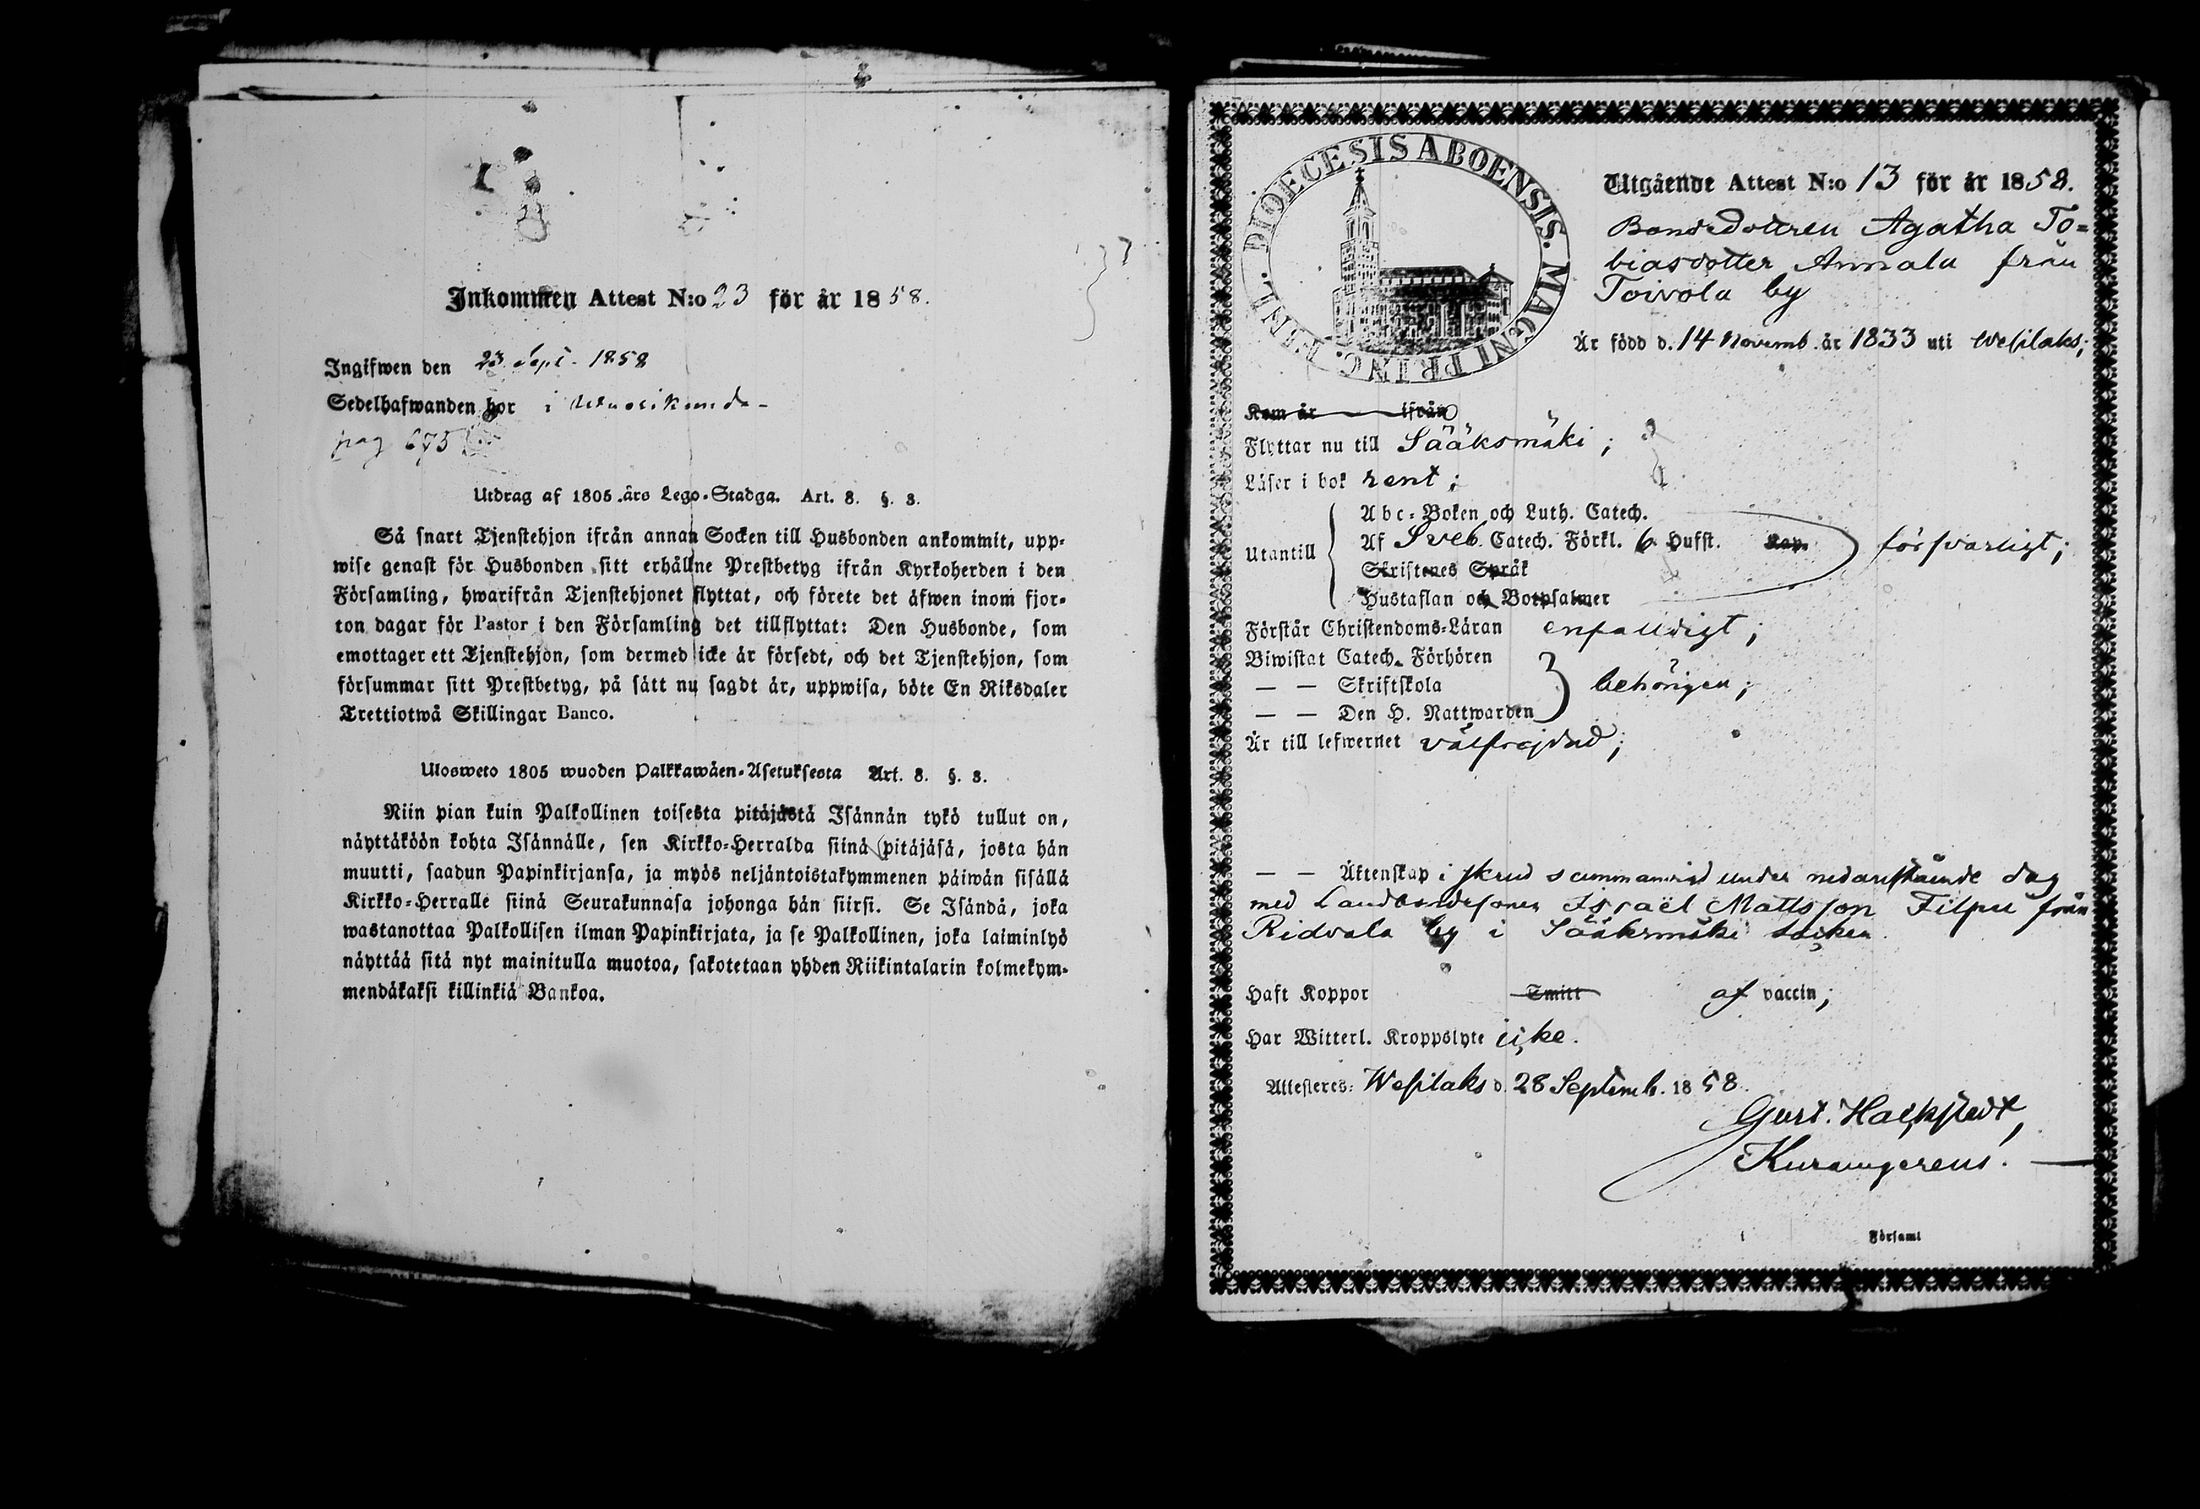 Inkommen Attest N:o 23 för år 1858.
Ingifwen den 23 Sept. 1858
Sedelhafwanden bor i
pag 675
Utdrag af 1805 års Lego-Stadga. Art. 8. §. 3.
Så snart Tjenstehjon ifrån annan Socken till Husbonden ankommit, upp-
wise genast för Husbonden sitt erhållne Prestbetyg ifrån Kyrkoherden i den
Församling, hwarifrån Tjenstehjonet flyttat, och förete det äfwen inom fjor-
ton dagar för Pastor i den Församling det tillflyttat: Den Husbonde, som
emottager ett Tjenstehjon, som dermed icke är försedt, och det Tjenstehjon, som
försummar sitt Prestbetyg, på sätt nu sagdt är, uppwisa, böte En Riksdaler
Trettiotwå Skillingar Banco.
Ulosweto 1805 wuoden Palkkawäen-Asetuksesta Art. 8. §. 3.
Niin pian kuin Palkollinen toisesta pitäjästä Isännän tykö tullut on,
näyttäköön kohta Isännälle, sen Kirkko-Herralda siinä pitäjäsä, josta hän
muutti, saadun Papinkirjansa, ja myös neljäntoistakymmenen päiwän sisällä
Kirkko-Herralle siinä Seurakunnasa johonga hän siirsi. Se Isändä, joka
wastanottaa Palkollisen ilman Papinkirjata, ja se Palkollinen, joka laiminlyö
näyttää sitä nyt mainitulla muotoa, sakotetaan yhden Riikintalarin kolmekym-
mendäkaksi killinkiä Bankoa.
DIOECESIS ABOENSIS. MAGNI PRINC. FENL.
Utgående Attest N:o 13 för år 1858.
Bondedottren Agatha To=
biasdotter Annala från
Toivola by
Är född d. 14 Novemb. år 1833 uti Wesilaks;
Kom år ifrån
Flyttar nu till Sääksmäki;
Läser i bok rent;
Utantill
Abc-Boken och Luth. Catech.
Af Sveb. Catech. Förkl. 6 Hufst. Kap. försvarligt;
Skriftenes Språk
Hustaflan och Botpsalmer
Förstår Christendoms-Läran enfalldigt;
Biwistat Catech. Förhören
— — Skriftskola behörigen;
— — Den H. Nattwarden
Är till lefwernet välfrejdad;
— — Äktenskap i skrud sammanvigd under nedanstående dag
med Landbondesonen Israël Mattsson Filpu från
Ridvala by i Sääksmäki socken
Haft Koppor Smitt af vaccin;
Har Witterl. Kroppslyte icke.
Attesteres: Wesilaks d. 28 Septemb. 1858.
Gust. Hackstedt,
Församl